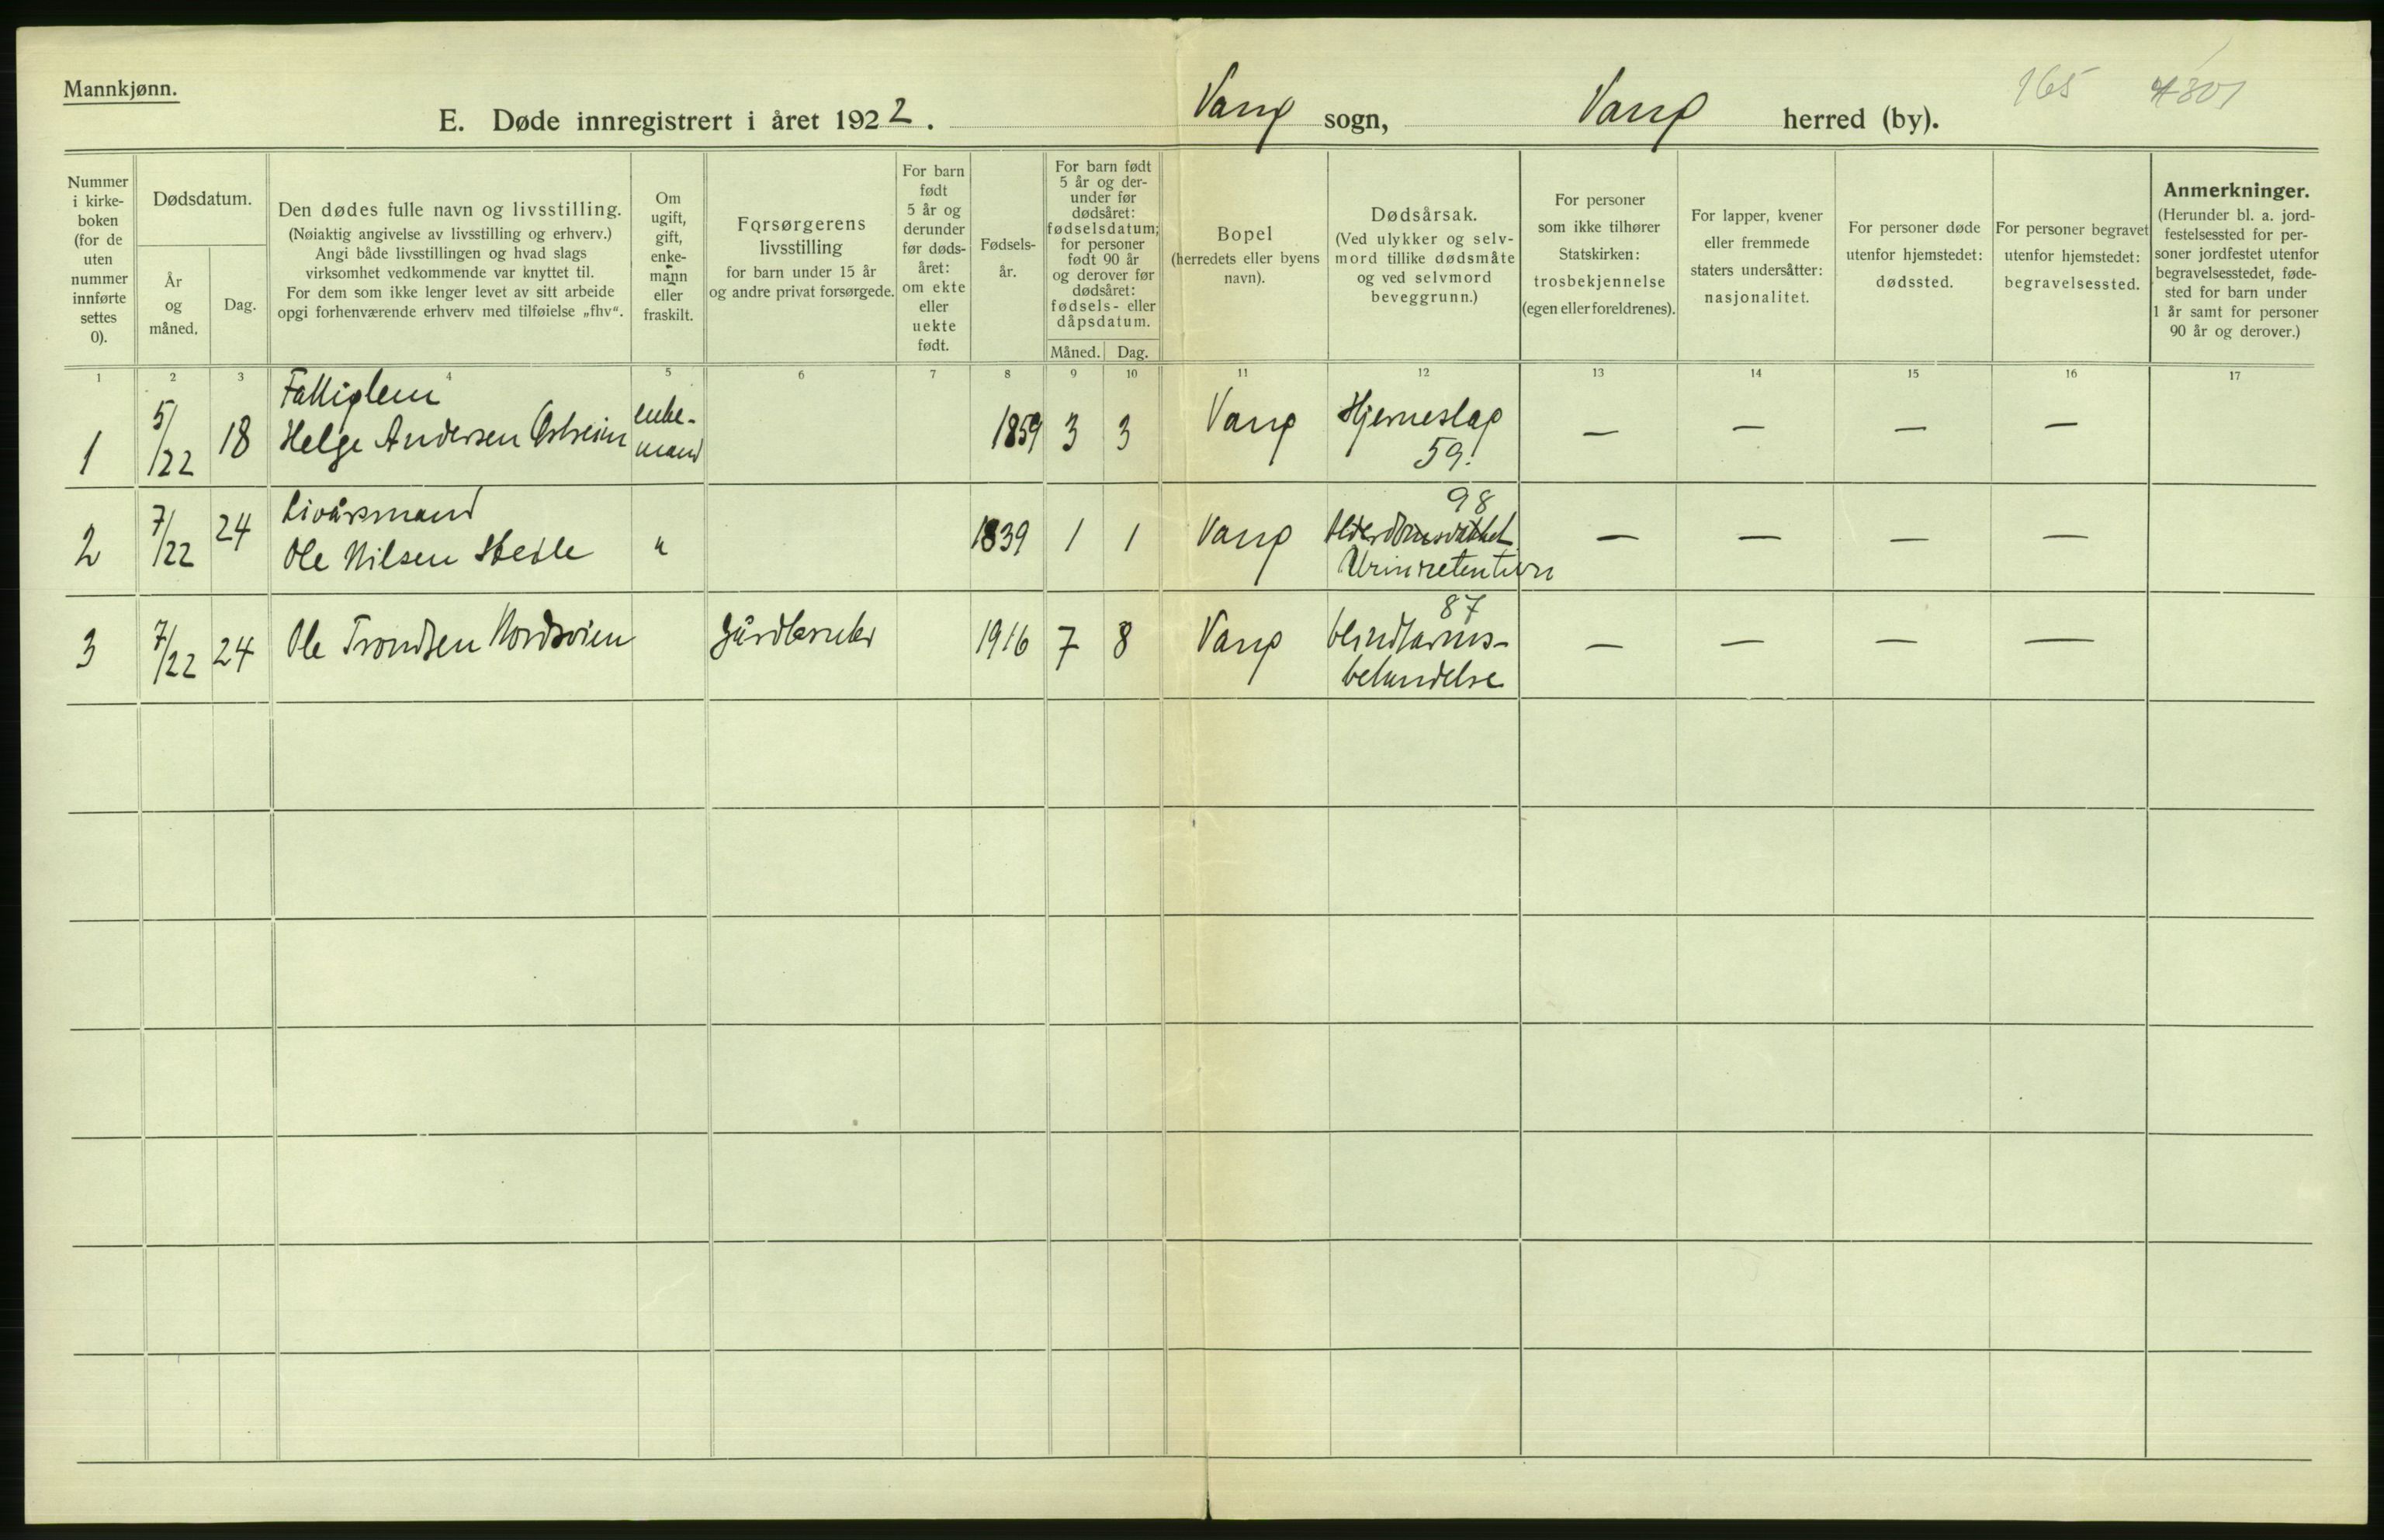 Mannkjønn.
E. Døde innregistrert i året 1922. Vang sogn, Vang herred (by).
165 4301
Nummer
i kirke-
boken
(for de
uten
nummer
innførte
settes
0).
Dødsdatum.
År
og
måned.
Dag.
Den dødes fulle navn og livsstilling.
(Nøiaktig angivelse av livsstilling og erhverv.)
Angi både livsstillingen og hvad slags
virksomhet vedkommende var knyttet til.
For dem som ikke lenger levet av sitt arbeide
opgi forhenværende erhverv med tilføielse „fhv“.
Om
ugift,
gift,
enke-
mann
eller
fraskilt.
Forsørgerens
livsstilling
for barn under 15 år
og andre privat forsørgede.
For barn
født
5 år og
derunder
før døds-
året:
om ekte
eller
uekte
født.
Fødsels-
år.
For barn født
5 år og der-
under før
dødsåret:
fødselsdatum;
for personer
født 90 år
og derover før
dødsåret:
fødsels- eller
dåpsdatum.
Måned. Dag.
Bopel
(herredets eller byens
navn).
Dødsårsak.
(Ved ulykker og selv-
mord tillike dødsmåte
og ved selvmord
beveggrunn.)
For personer
som ikke tilhører
Statskirken:
trosbekjennelse
(egen eller foreldrenes).
For lapper, kvener
eller fremmede
staters undersåtter:
nasjonalitet.
For personer døde
utenfor hjemstedet:
dødssted.
For personer begravet
utenfor hjemstedet:
begravelsessted.
Anmerkninger.
(Herunder bl. a. jord-
festelsessted for per-
soner jordfestet utenfor
begravelsesstedet, føde-
sted for barn under
1 år samt for personer
90 år og derover.)
1 2 3 4 5 6 7 8 9 10 11 12 13 14 15 16 17
Fattiglem
1 5/22 18 Helge Andersen enke-mand 1859 3 3 Vang Hjerneslag — — — —
59.
98
Livårsmand
2 7/22 24 Ole Nilsen " 1839 1 1 Vang — — — —
Urinretention
87
3 7/22 24 Ole Trondsen Nordsvien Gårdbruker 1916 7 8 Vang blindtarms- — — — —
behandelse